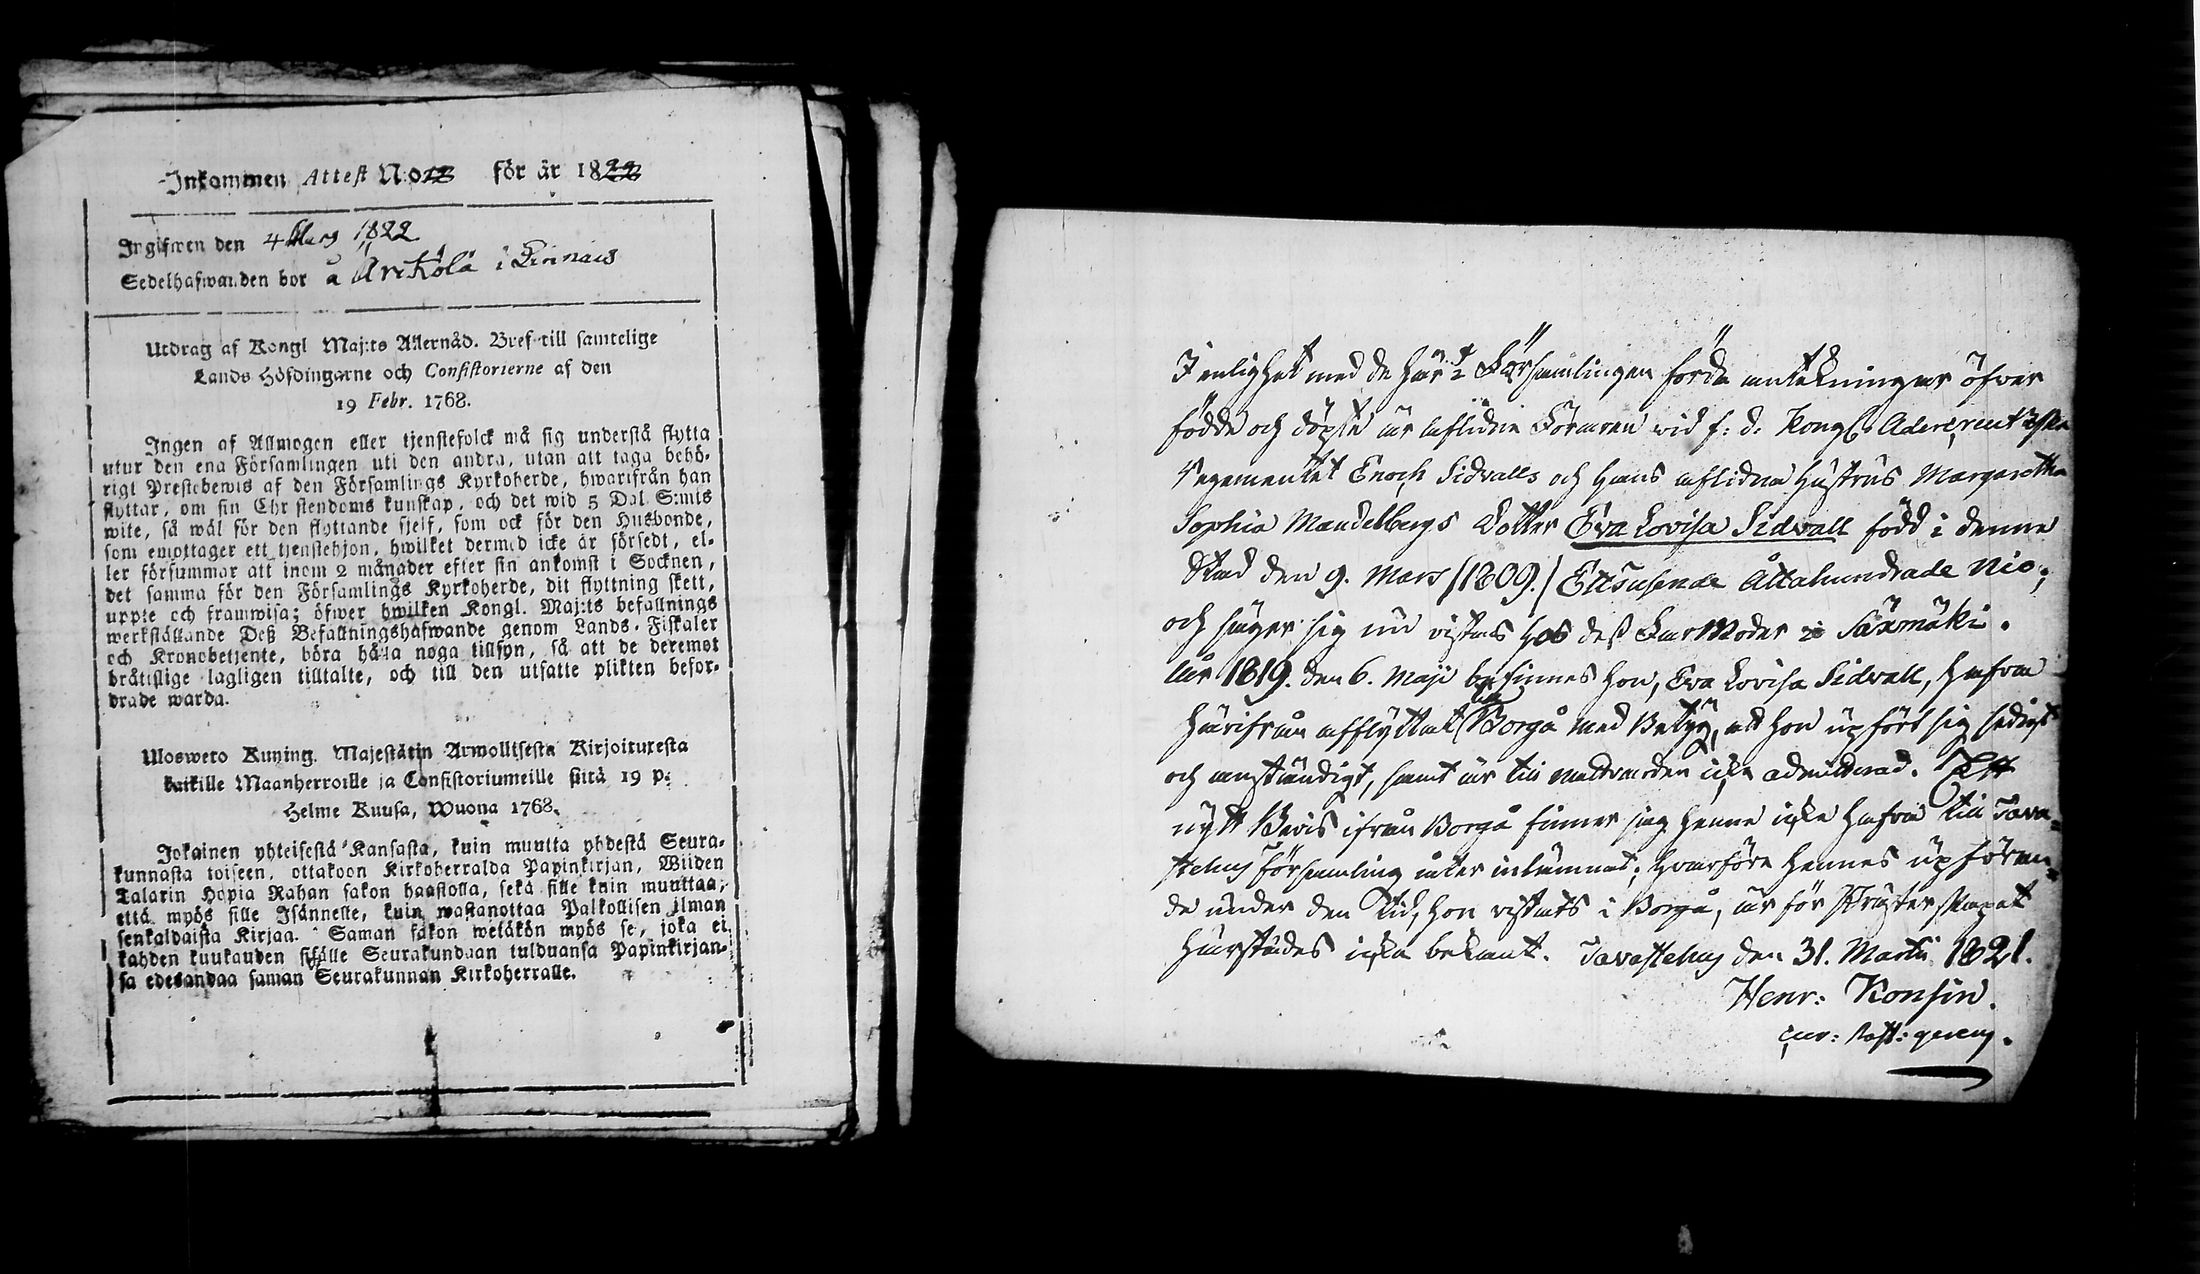 Inkommen Attest No 12 för år 1822
Ingifwen den 4 Mars 1822
Sedelhafwanden bor å Ärtkölä i Finnais
Utdrag af Kongl Maj:ts Allernåd. Bref till samtelige
Lands Höfdingarne och Consistorierne af den
19 Febr. 1768.
Ingen af Allmogen eller tjenstefolck må sig understå flytta
utur den ena Församlingen uti den andra, utan att taga behö-
rigt Prestebewis af den Församlings Kyrkoherde, hwarifrån han
flyttar, om sin Christendoms kunskap, och det wid 5 Dal. S:mts
wite, så wäl för den flyttande sjelf, som ock för den Husbonde,
som emottager ett tjenstehjon, hwilket dermed icke är försedt, el-
ler försummar att inom 2 månader efter sin ankomst i Socknen,
det samma för den Församlings Kyrkoherde, dit flyttning skett,
uppte och framwisa; öfwer hwilken Kongl. Maj:ts befallnings
werkställande Deß Befallningshafwande genom Lands-Fiskaler
och Kronobetjente, böra hålla noga tillsyn, så att de deremot
bråttslige lagligen tilltalte, och till den utsatte plikten befor-
drade warda.
Ulosweto Kuning. Majestätin Armollisesta Kirjoituxesta
kaikille Maanherroille ja Consistoriumeille siitä 19 p:
Helme Kuusa, Wuona 1768.
Jokainen yhteisestä Kansasta, kuin muutta yhdestä Seura-
kunnasta toiseen, ottakoon Kirkoherralda Papinkirjan, Wiiden
Talarin Hopia Rahan sakon haastolla, sekä sille kuin muuttaa,
että myös sille Isännelle, kuin wastanottaa Palkollisen ilman
senkaldaista Kirjaa. Saman sakon wetäkön myös se, joka ei
kahden kuukauden sisälle Seurakundaan tulduansa Papinkirjan-
sa edesandaa saman Seurakunnan Kirkoherralle.
I enlighet med de här i Församlingen förda antekningar öfver
födde och döpte är aflidne Föraren vid f: d: Kongl. Adlercreutzska
regementet Enoch Sidvalls och hans aflidna hustrus Margaretha
Sophia Mandelbergs Dotter Eva Lovisa Sidvall född i denna
Stad den 9. Mars /1809./ Ettusende Åttahundrade Nio;
och säges sig nu vistas hos deß FarModer i Säxmäki.
År 1819. den 6. Maji befinnes hon, Eva Lovisa Sidvall, hafva
härifrån afflyttat til Borgå med Betyg, att hon upfört sig sedigt
och anständigt, samt är till nattvarden icke admitterad. Ett
nytt Bevis ifrån Borgå finner jag henne icke hafva till Tava-
stehus Församling åter inlämnat; hvarföre hennes upföran-
de under den tid, hon vistats i Borgå, är för Prästerskapet
härstädes icke bekant. Tavastehus den 31. Martii 1821.
Henr: Konsin.